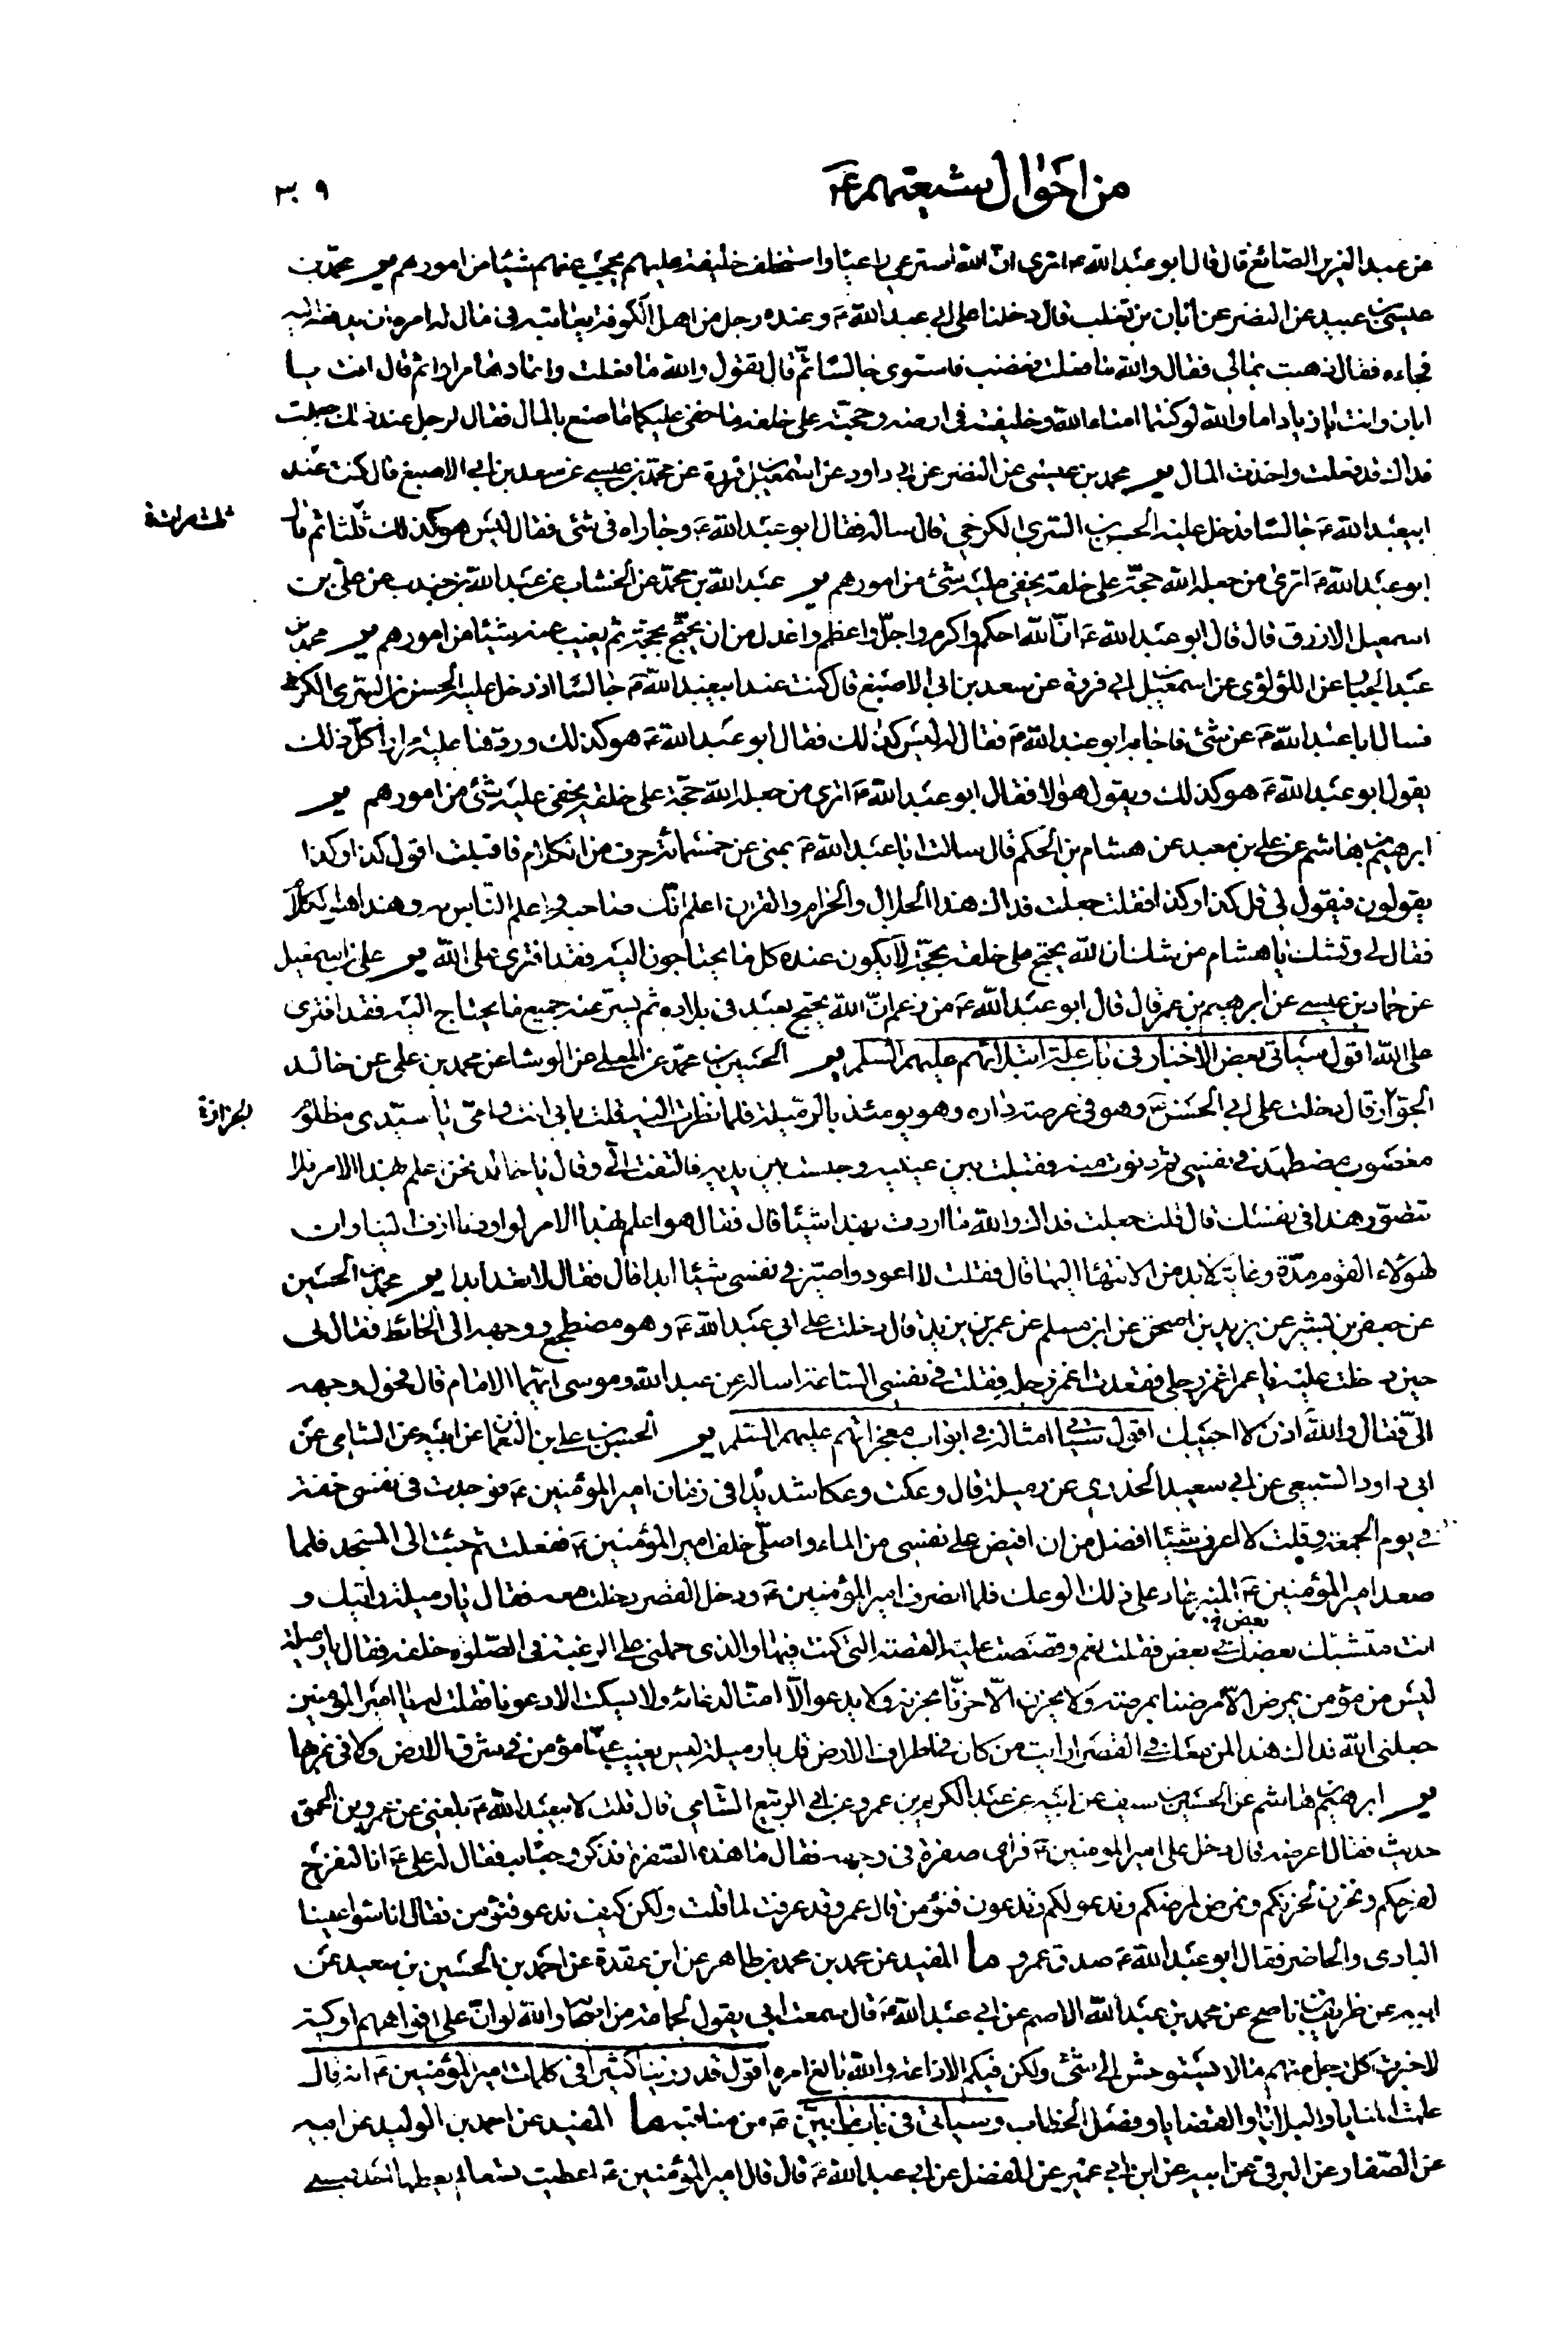 من احوال شيعتهم ع
٣٠٩
عن عبد العزيز الصائغ قال قال ابو عبد الله ع اترى ان الله استرعى راعيا واستخلف خليفة عليهم يحجب عنهم شيئا من امورهم ير محمد بن
عيسى بن عبيد عن النضر عن ابان بن تغلب قال دخلنا على ابى عبد الله ع وعنده رجل من اهل الكوفة يعاتبه فى مال له امره ان يدفعه اليه
فجاءه فقال ذهبت بمالى فقال والله ما فعلت فغضب فاستوى جالسا ثم قال تقول والله ما فعلت واعادها مرارا ثم قال انت يا
ابان وانت يا زياد اما والله لو كنتما امناء الله وخليفته فى ارضه وحجته على خلقه ما خفى عليكما ما صنع بالمال فقال الرجل عند ذلك جعلت
فداك قد فعلت واخذت المال ير محمد بن عيسى عن النضر عن ابى داود عن اسمعيل بن فروة عن محمد بن عيسى عن سعد بن ابى الاصبغ قال كنت عند
ابيعبد الله ع جالسا فدخل عليه الحسن بن السرى الكرخى قال ساله فقال ابو عبد الله ع وجاراه فى شئ فقال ليس هو كذلك ثلثا ثم قال
ثلث مرات
ابو عبد الله ع اترى من جعله الله حجة على خلقه يخفى عليه شئ من امورهم ير عبد الله بن محمد عن الخشاب عن عبد الله بن جندب عن على بن
اسمعيل الازرق قال قال ابو عبد الله ع ان الله احكم واكرم واجل واعظم واعدل من ان يحتج بحجة ثم يغيب عنه شيئا من امورهم ير محمد بن
عبد الجبار عن اللؤلؤى عن اسمعيل بن ابى فروة عن سعد بن ابى الاصبغ قال كنت عند ابيعبد الله ع جالسا اذ دخل عليه الحسن بن السرى الكرخى
فسال ابا عبد الله ع عن شئ فاجابه ابو عبد الله ع فقال له ليس كذلك فقال ابو عبد الله ع هو كذلك وردها عليه مرارا كل ذلك
يقول ابو عبد الله ع هو كذلك ويقول هو لا فقال ابو عبد الله ع اترى من جعله الله حجة على خلقه يخفى عليه شئ من امورهم ير
ابرهيم بن هاشم عن على بن معبد عن هشام بن الحكم قال سالت ابا عبد الله ع بمنى عن خمسمائة حرف من الكلام فاقبلت اقول كذا وكذا
يقولون فيقول لى قل كذا وكذا فقلت جعلت فداك هذا الحلال والحرام والقران اعلم انك صاحبه واعلم الناس به وهذا هو الكلام
فقال لى وتشك يا هشام من شك ان الله يحتج على خلقه بحجة لا يكون عنده كل ما يحتاجون اليه فقد افترى على الله ير على بن اسمعيل
عن حماد بن عيسى عن ابرهيم بن عمر قال قال ابو عبد الله ع من زعم ان الله يحتج بعبد فى بلاده ثم يستر عنه جميع ما يحتاج اليه فقد افترى
على الله اقول سياتى بعض الاخبار فى باب علة ابتلائهم عليهم السلم ير الحسين بن محمد عن المعلى عن الوشا عن محمد بن على عن خالد
الجواز قال دخلت على ابى الحسن ع وهو فى عرصة داره وهو يومئذ بالرميلة فلما نظرت اليه قلت بابى انت وامى يا سيدى مظلوم
الجزارة
مغصوب مضطهد فى نفسى ثم دنوت منه فقبلت بين عينيه وجلست بين يديه فالتفت الى وقال يا خالد نحن اعلم بهذا الامر فلا
تتصور هذا فى نفسك قال قلت جعلت فداك والله ما اردت بهذا شيئا قال فقال هو اعلم بهذا الامر لو اردنا ازف الينا وان
لهؤلاء القوم مدة وغاية لا بد من الانتهاء اليها قال فقلت لا اعود واصير فى نفسى شيئا ابدا قال فقال لا تعد ابدا ير محمد بن الحسين
عن جعفر بن بشير عن يزيد بن اسحق عن ابن مسلم عن عمر بن يزيد قال دخلت على ابى عبد الله ع وهو مضطجع ووجهه الى الحائط فقال لى
حين دخلت عليه يا عمر اغمز رجلى فقعدت اغمز رجله فقلت فى نفسى الساعة اساله عن عبد الله وموسى ايهما الامام قال فحول وجهه
الى فقال والله اذن لا اجيبك اقول سياتى امثاله فى ابواب معجزاتهم عليهم السلم ير الحسن بن على بن النعمان عن ابيه عن الشامى عن
ابى داود السبيعى عن ابى سعيد الخدرى عن رميلة قال وعكت وعكا شديدا فى زمان امير المؤمنين ع فوجدت فى نفسى خفة
فى يوم الجمعة وقلت لا اعرف شيئا افضل من ان افيض على نفسى من الماء واصلى خلف امير المؤمنين ع ففعلت ثم جئت الى المسجد فلما
صعد امير المؤمنين ع المنبر عاد على ذلك الوعك فلما انصرف امير المؤمنين ع ودخل القصر دخلت معه فقال يا رميلة رايتك و
بعض فى
انت متشبك بعضك فى بعض فقلت نعم وقصصت عليه القصة التى كنت فيها والذى حملنى على الرغبة فى الصلوة خلفه فقال يا رميلة
ليس من مؤمن يمرض الا مرضنا بمرضه ولا يحزن الا حزنا بحزنه ولا يدعو الا امنا لدعائه ولا يسكت الا دعونا فقلت له يا امير المؤمنين
جعلنى الله فداك هذا لمن معك فى القصر ارايت من كان فى اطراف الارض قال يا رميلة ليس يغيب عنا مؤمن فى شرق الارض ولا فى غربها
ير ابرهيم بن هاشم عن الحسين بن سيف عن ابيه عن عبد الكريم بن عمرو عن ابى الربيع الشامى قال قلت لابيعبد الله ع بلغنى عن عمرو بن الحمق
حديث فقال اعرضه قال دخل على امير المومنين ع فراى صفرة فى وجهه فقال ما هذه الصفرة فذكر وجعا به فقال له على ع انا لنفرح
لفرحكم ونحزن لحزنكم ونمرض لمرضكم وندعو لكم وتدعون فنؤمن قال عمرو قد عرفت ما قلت ولكن كيف ندعو فتؤمن فقال انا سواء علينا
البادى والحاضر فقال ابو عبد الله ع صدق عمرو ما المفيد عن محمد بن محمد بن طاهر عن ابن عقدة عن احمد بن الحسين بن سعيد عن
ابيه عن ظريف بن ناصح عن محمد بن عبد الله الاصم عن ابى عبد الله ع قال سمعت ابى يقول لجماعة من اصحابه والله لو ان على افواههم اوكية
لاخبرت كل رجل منهم ما لا يستوحش الى شئ ولكن فيكم الاذاعة والله بالغ امره اقول قد روينا كثيرا فى كلمات امير المؤمنين ع انه قال
علمت المنايا والبلايا والقضايا وفصل الخطاب وسياتى فى باب ع من مناقبه ما المفيد عن احمد بن الوليد عن ابيه
عن الصفار عن البرقى عن ابيه عن ابن ابى عمير عن المفضل عن ابى عبد الله ع قال قال امير المؤمنين ع اعطيت تسعا لم يعطها احد قبلى